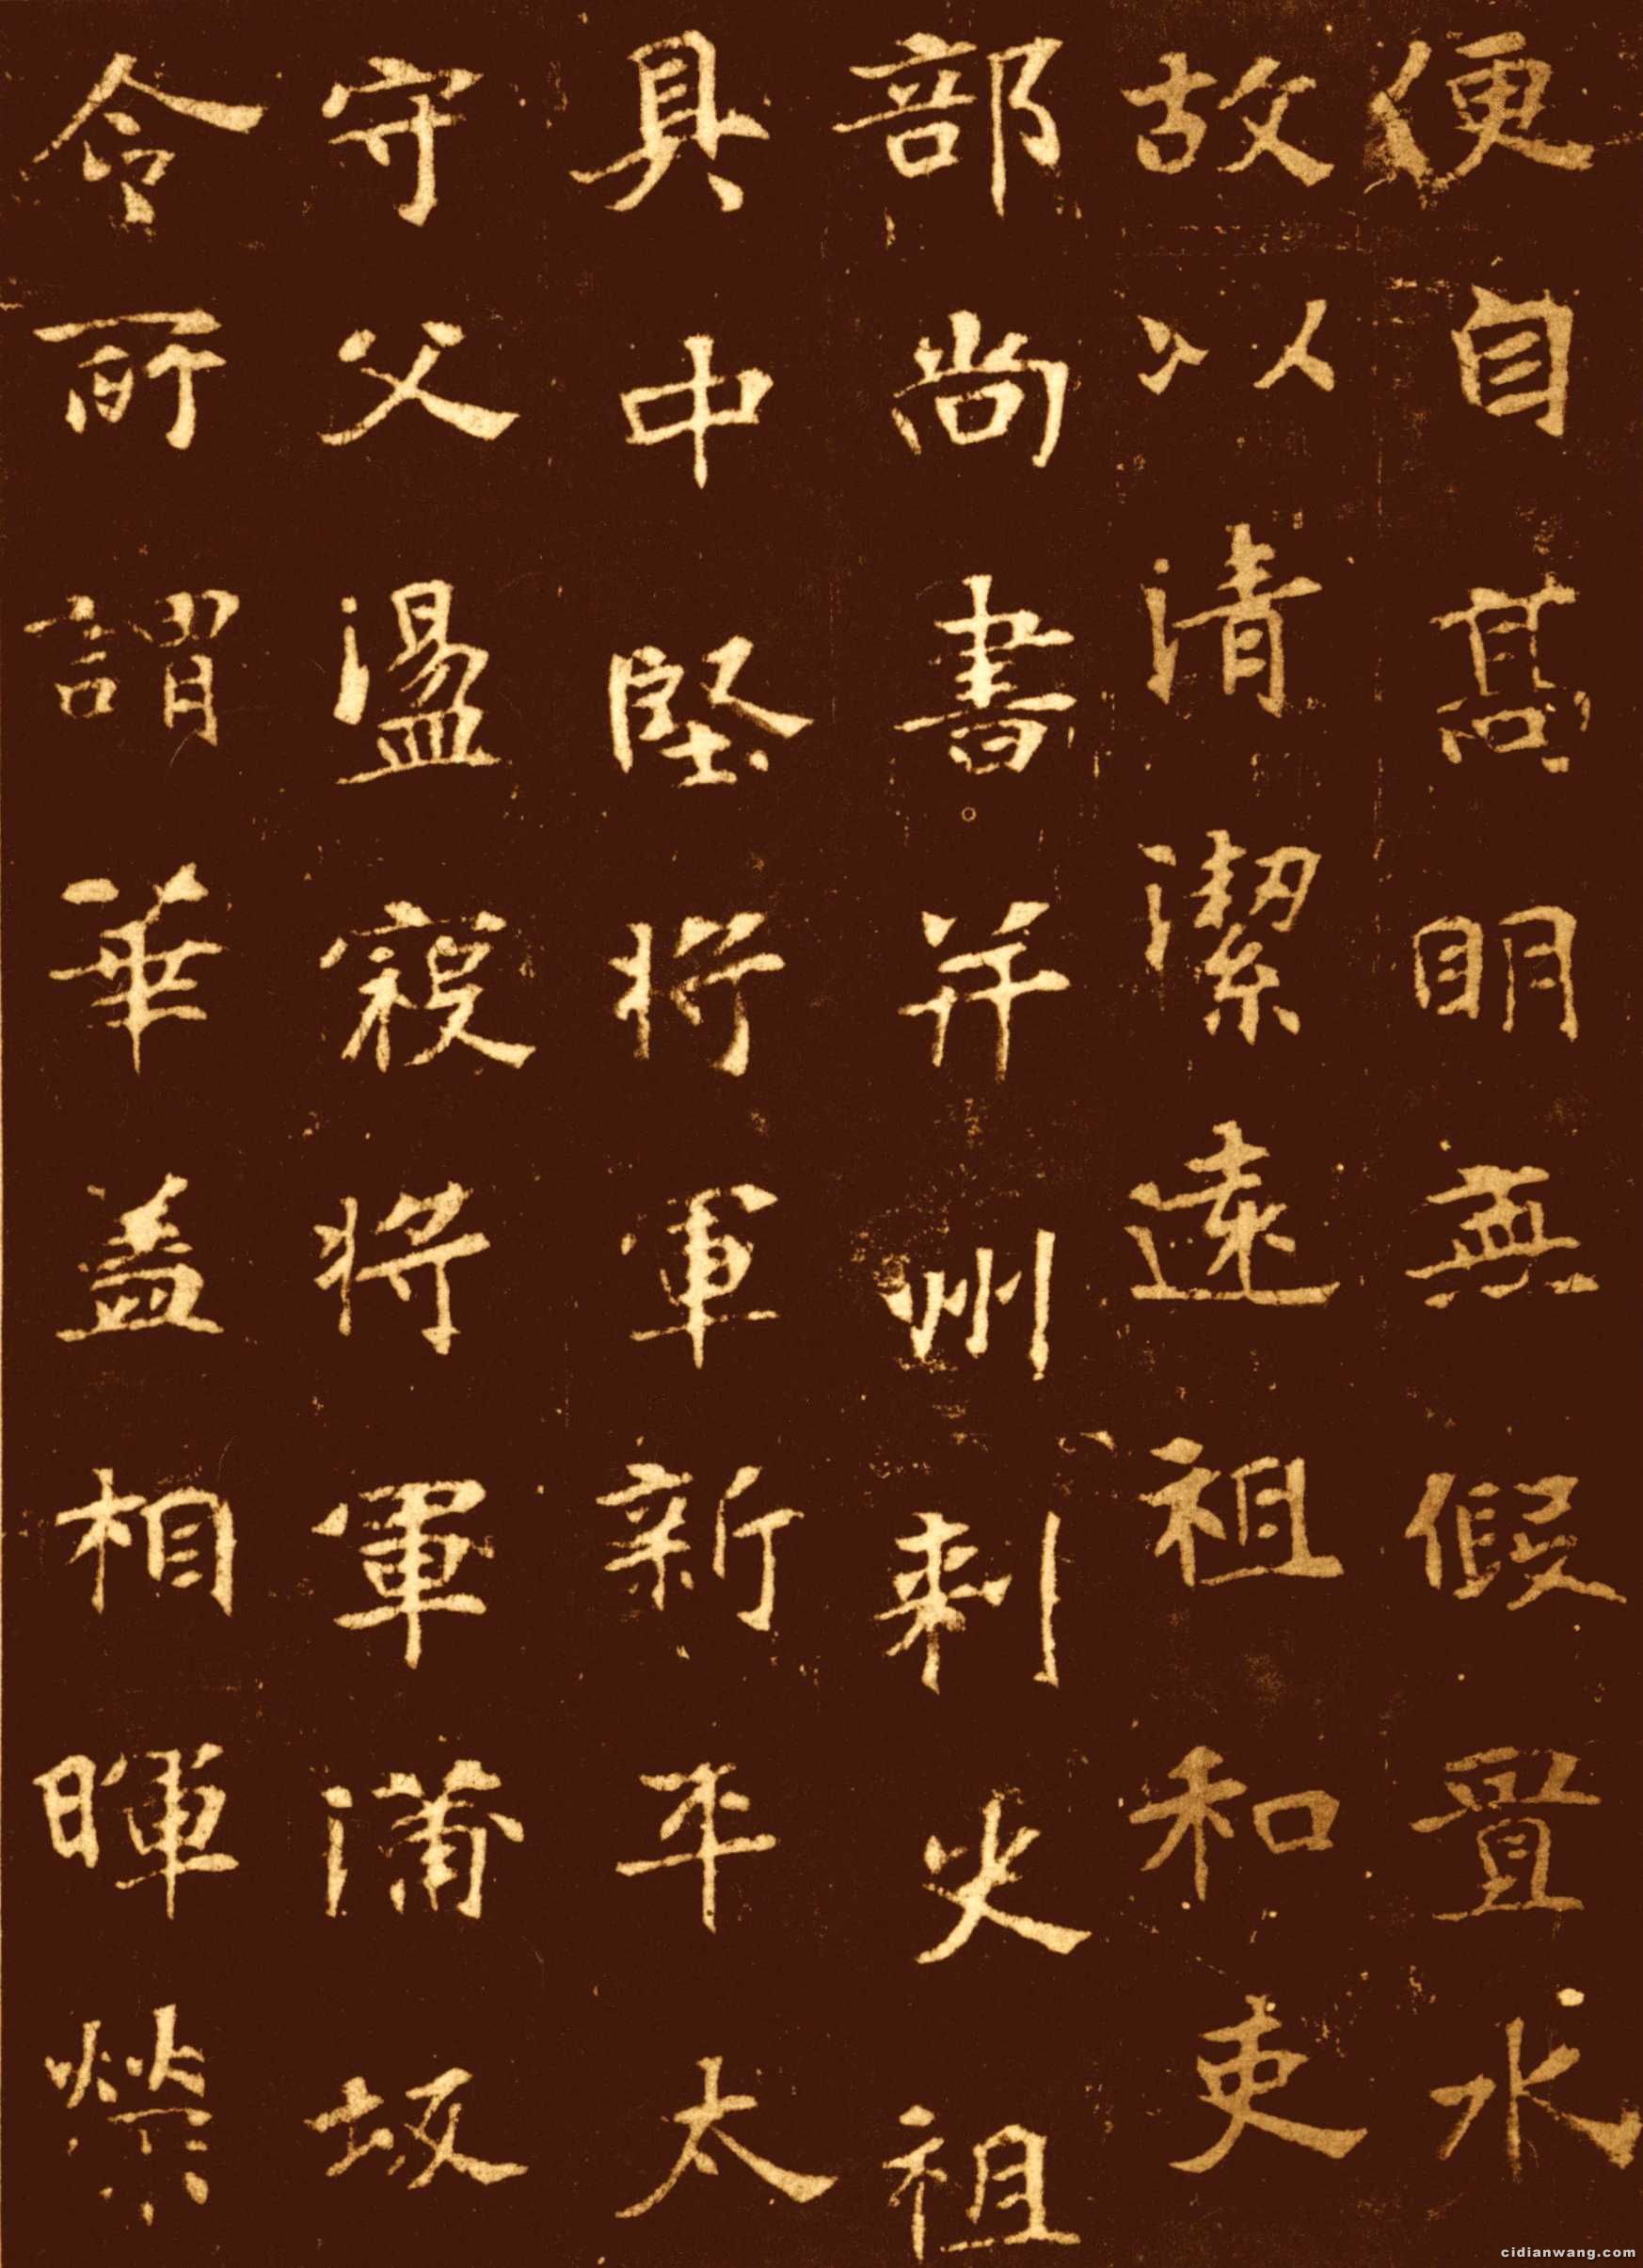 便自高明無假置水
故以清潔遠祖和吏
部尚書并州刺史祖
具中堅將軍新平太
守父盪寇將軍蒲坂
令所謂華蓋相暉榮
cidianwang.com